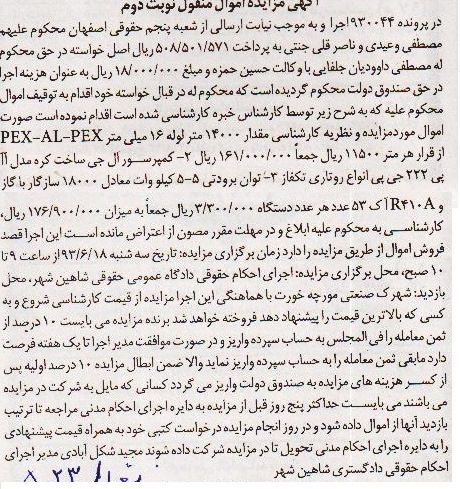 آگهی مزایده اموال منقول نوبت دوم
در پرونده ۹۳۰۰۴۴ اجرا و به موجب نیابت ارسالی از شعبه پنجم حقوقی اصفهان محکوم علیهم
مصطفی وعیدی و ناصر قلی جنتی به پرداخت ۵۰۸/۵۰۱/۵۷۱ ریال اصل خواسته در حق محکوم
له مصطفی داوودیان جلفایی با وکالت حسین حمزه و مبلغ ۱۸/۰۰۰/۰۰۰ ریال به عنوان هزینه اجرا
در حق صندوق دولت محکوم گردیده است که محکوم له در قبال خواسته خود اقدام به توقیف اموال
محکوم علیه که به شرح زیر توسط کارشناس خبره کارشناسی شده است اقدام نموده است صورت
اموال مورد مزایده و نظریه کارشناسی مقدار ۱۴۰۰۰ متر لوله ۱۶ میلی متر PEX-AL-PEX
از قرار هر متر ۱۱۵۰۰ ریال جمعاً ۱۶۱/۰۰۰/۰۰۰ ریال ۲- کمپرسور ال جی ساخت کره مدل آآ
پی ۲۲۲ جی پی انواع روتاری تکفاز ۳- توان برودتی ۵-۵ کیلو وات معادل ۱۸۰۰۰ سازگار با گاز
و R۴۱۰A آک ۵۳ عدد هر عدد دستگاه ۳/۳۰۰/۰۰۰ ریال جمعاً به میزان ۱۷۶/۹۰۰/۰۰۰ ریال،
کارشناسی به محکوم علیه ابلاغ و در مهلت مقرر مصون از اعتراض مانده است این اجرا قصد
فروش اموال از طریق مزایده را دارد زمان برگزاری مزایده: تاریخ سه شنبه ۹۳/۶/۱۸ از ساعت ۹ تا
۱۰ صبح، محل برگزاری مزایده: اجرای احکام حقوقی دادگاه عمومی حقوقی شاهین شهر، محل
بازدید: شهرک صنعتی مورچه خورت با هماهنگی این اجرا مزایده از قیمت کارشناسی شروع و به
کسی که بالاترین قیمت را پیشنهاد دهد فروخته خواهد شد برنده مزایده می بایست ۱۰ درصد از
ثمن معامله را فی المجلس به حساب سپرده واریز و در صورت موافقت مدیر اجرا تا یک هفته فرصت
دارد مابقی ثمن معامله را به حساب سپرده واریز نماید والا ضمن ابطال مزایده ۱۰ درصد اولیه پس
از کسر هزینه های مزایده به صندوق دولت واریز می گردد کسانی که مایل به شرکت در مزایده
می باشند می بایست حداکثر پنج روز قبل از مزایده به دایره اجرای احکام مدنی مراجعه تا ترتیب
بازدید آنها از اموال داده شود و در روز انجام مزایده درخواست کتبی خود به همراه قیمت پیشنهادی
را به دایره اجرای احکام مدنی تحویل تا در مزایده شرکت داده شوند مجید شکل آبادی مدیر اجرای
احکام حقوقی دادگستری شاهین شهر